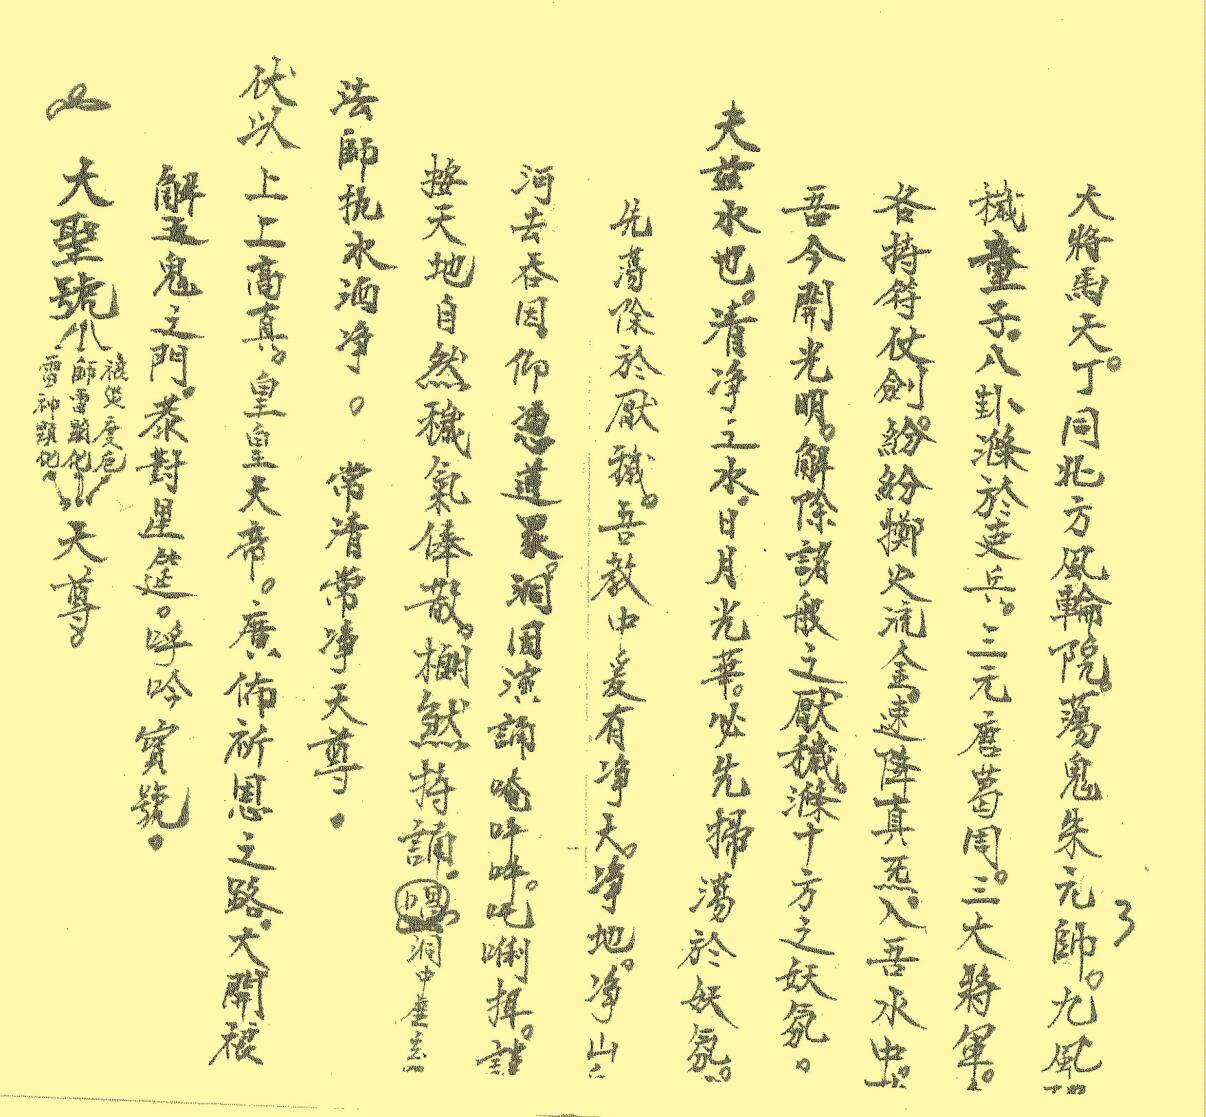 大將馬天丁。同北方風輪院。蕩鬼朱元帥。九風
穢童子。八卦滌於吏兵。三元唐葛周。三大將軍。
各持符仗劍。紛紛擲火流金。速降真炁。入吾水中。
吾今開光明。解除諸般之厭穢。滌十方之妖氛。
夫兹水也。清净之水。日月光華。必先掃蕩於妖氛。
先蕩除於厭穢。吾教中爰有净天。净地。净山
河去吞因仰憑道眾。洞因演誦唵吽吽。吒唎揖。
按天地自然穢氣俸散。棚然持誦。唱洞中
法師执水洒净。常清常净天尊。
伏以上上高真。皇皇天帝。廣佈祈恩之路。大開禳
解五鬼之門。恭對星筵。呼吟寳號。
大聖號 禳災度危 師雷顯化 雷神顯化 天尊。
3